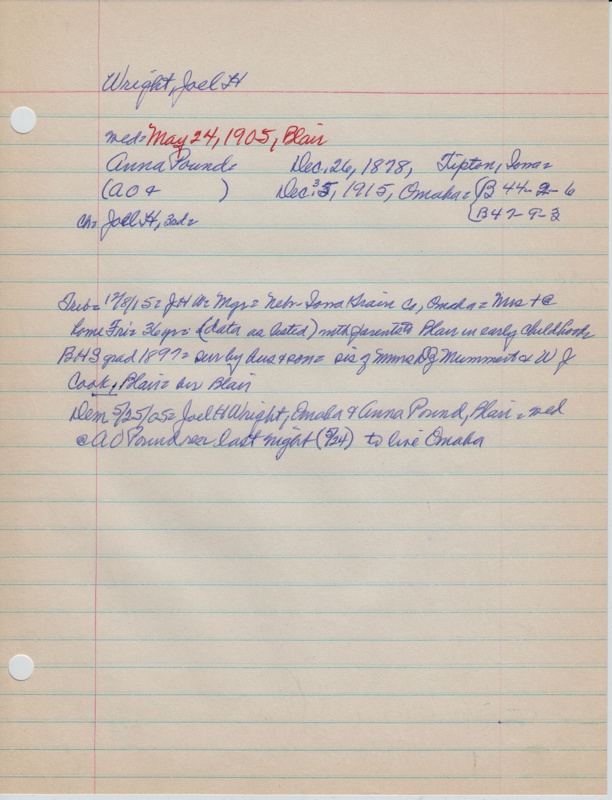 Wright, Joel H
med= May 24, 1905, Blair
Anna Pound= Dec. 26, 1878, Tipton, Iowa=
(A O & ) Dec. 3, 1915, Omaha= (B 44-2-6
ch= Joel H, 3rd= (B 47-9-3
Trib= 12/8/15= J H W= Mgr= Nebr-Iowa Grain Co, Omaha= Mrs + @
home Fri= 36 yr= (data as listed) with parents to Blair in early childhood
BHS grad 1897= sur by hus & son= sis of Mmes D Z Mummert & W J
Cook, Blair= bur Blair
Dem 5/25/05= Joel H Wright, Omaha & Anna Pound, Blair= med
@ A O Pound res last night (5/24) to live Omaha